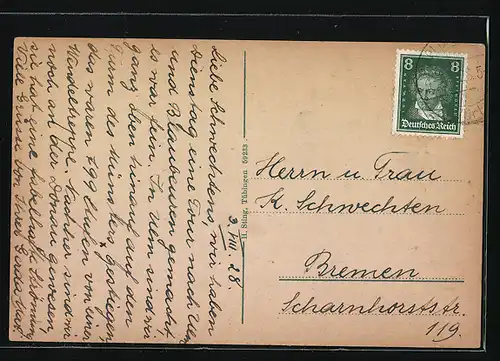 3. VIII. 28.
Liebe Schwechtens, wir haben
Dienstag eine Tour nach Ulm
und Blaubeuren gemacht,
es war fein. In Ulm sind wir
ganz oben hinauf auf den
Turm des Münsters gestiegen
das waren 799 Stufen von einer
Wendeltreppe. Nachher sind wir
noch an der Donau gewesen
sie hat eine fabelhafte Strömung.
Viele Grüsse von Ihrer
H. Sting, Tübingen 59233
8 8
Deutsches Reich
Herrn u Frau
K. Schwechten
Bremen
Scharnhorststr.
119.